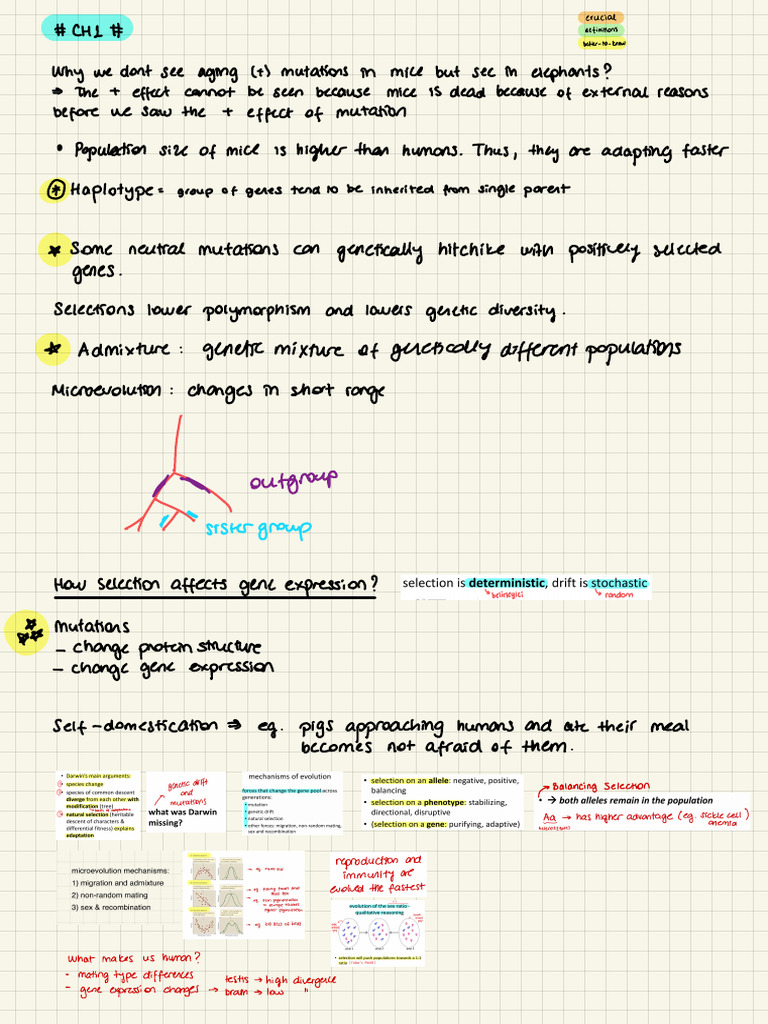 # CH1 #
crucial
definitions
better-to-know
Why we dont see aging (+) mutations in mice but see in elephants?
⇒ The + effect cannot be seen because mice is dead because of external reasons
before we saw the + effect of mutation
• Population size of mice is higher than humans. Thus, they are adapting faster
Haplotype = group of genes tend to be inherited from single parent
Some neutral mutations can genetically hitchike with positively selected
genes.
Selections lower polymorphism and lowers genetic diversity.
Admixture: genetic mixture of genetically different populations
Microevolution: changes in short range
outgroup
sister group
How selection affects gene expression?
selection is deterministic, drift is stochastic
belirleyici
random
Mutations
– change protein structure
– change gene expression
Self-domestication ⇒ eg. pigs approaching humans and ate their meal
becomes not afraid of them.
• Darwin's main arguments:
species change
species of common descent
diverge from each other with
modification (tree)
natural selection (heritable
descent of characters &
differential fitness) explains
adaptation
genetic drift
and
mutations
what was Darwin
missing?
mechanisms of evolution
forces that change the gene pool across
generations:
• mutation
• genetic drift
• natural selection
• other forces: migration, non-random mating,
sex and recombination
• selection on an allele: negative, positive,
balancing
• selection on a phenotype: stabilizing,
directional, disruptive
• (selection on a gene: purifying, adaptive)
Balancing Selection
• → both alleles remain in the population
Aa → has higher advantage (eg. sickle cell)
anemia
microevolution mechanisms:
1) migration and admixture
2) non-random mating
3) sex & recombination
reproduction and
immunity are
evolved the fastest
evolution of the sex ratio -
qualitative reasoning
• selection will push populations towards a 1:1
ratio
What makes us human?
- mating type differences
- gene expression changes → testis → high divergence
brain → low "